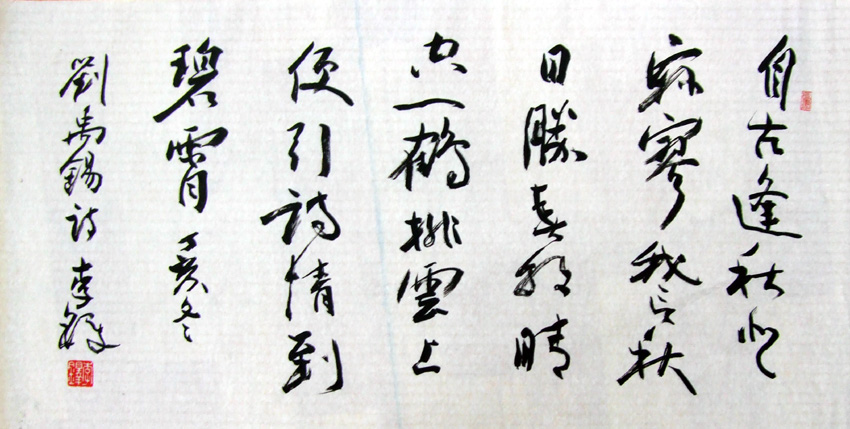 自古逢秋悲
寂寥我言秋
日勝春朝晴
空一鶴排雲上
便引詩情到
碧霄 丁亥冬
劉禹錫詩 李